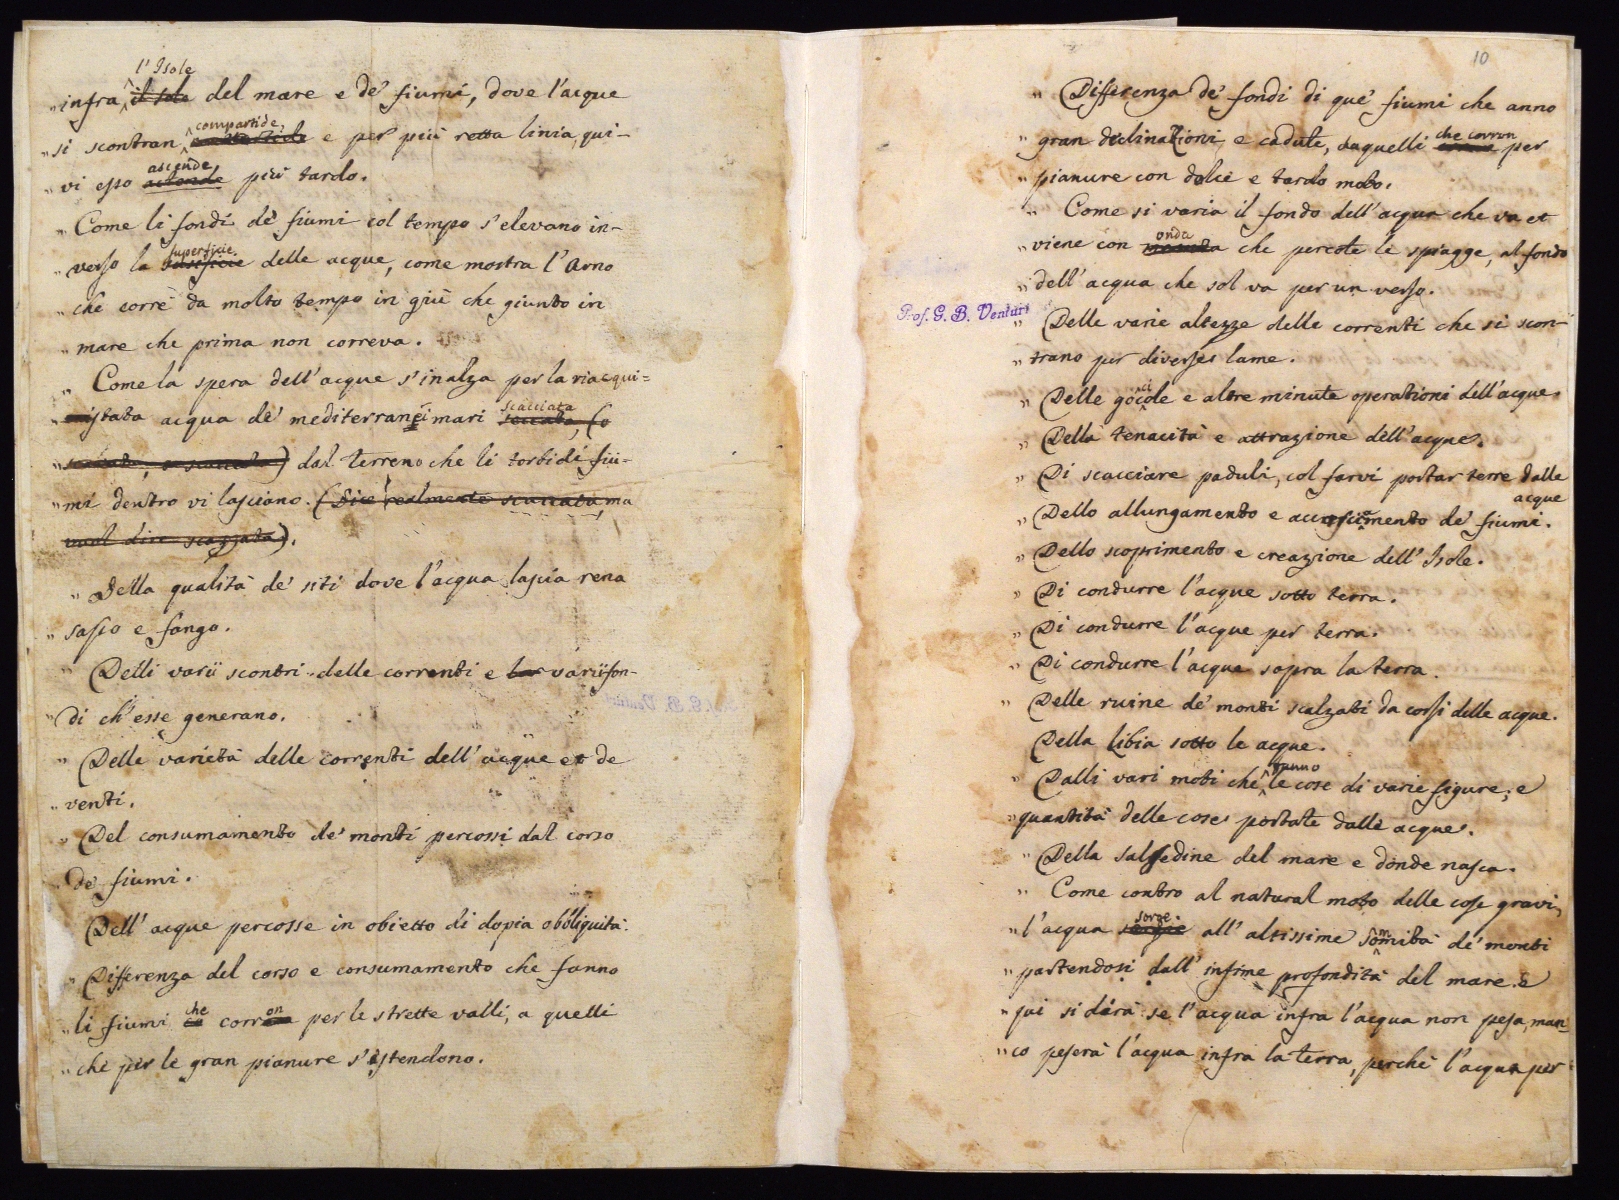 l'Isole
"infra il sole del mare e de' fiumi, dove l'acque
compartide,
"si scontran e per più retta linia, qui-
ascende
"vi esso actende più tardo.
"Come li fondi de' fiumi col tempo s'elevano in-
superficie
"verso la delle acque, come mostra l'Arno
"che corre da molto tempo in giù che giunto in
"mare che prima non correva.
"Come la spera dell'acque s'inalza per la riacqui=
scacciata
"istata acqua de' mediterranei mari seccata, (o
" dal terreno che li torbidi fiu-
"mi dentro vi lasciano. (Dice realmente scaccata, ma
vuol dire scazzata).
"Della qualità de' siti dove l'acqua lascia rena
"sasso e fango.
"Delli varii scontri delle correnti e lor varii fon-
"di ch'esse generano.
"Delle varietà delle correnti dell'acque et de
"venti.
"Del consumamento de' monti percossi dal corso
"de' fiumi.
Dell'acque percosse in obietto di dopia obbliquità.
"Differenza del corso e consumamento che fanno
che on
"li fiumi corr per le strette valli, a quelli
"che per le gran pianure s'istendono.
10
"Differenza de' fondi di que' fiumi che anno
che corron
"gran declinazioni, e cadute, daquelli per
"pianure con dolce e tardo moto.
"Come si varia il fondo dell'acqua che va et
onda
"viene con che percote le spiagge, al fondo
"dell'acqua che sol va per un verso.
Prof. G. B. Venturi
"Delle varie altezze delle correnti che si scon-
"trano per diverses lame.
ci
"Delle gocole e altre minute operationi dell'acque.
"Della tenacità e attrazione dell'acque.
"Di scacciare paduli, col farvi portar terre dalle
acque
"Dello allungamento e accrescimento de' fiumi.
"Dello scoprimento e creazione dell'Isole.
"Di condurre l'acque sotto terra.
"Di condurre l'acque per terra.
"Di condurre l'acque sopra la terra.
"Delle ruine de' monti scalzati da corsi delle acque.
Della Libia sotto le acque.
anno
"Dalli vari moti che le cose di varie figure, e
"quantità delle cose portate dalle acque.
"Della salsedine del mare e donde nasca.
"Come contro al natural moto delle cose gravi,
sorge
"l'acqua all'altissime somità de' monti
"partendosi dall'infime profondità del mare. E
"qui si dirà se l'acqua infra l'acqua non pesa, man
"co peserà l'acqua infra la terra, perchè l'acqua per